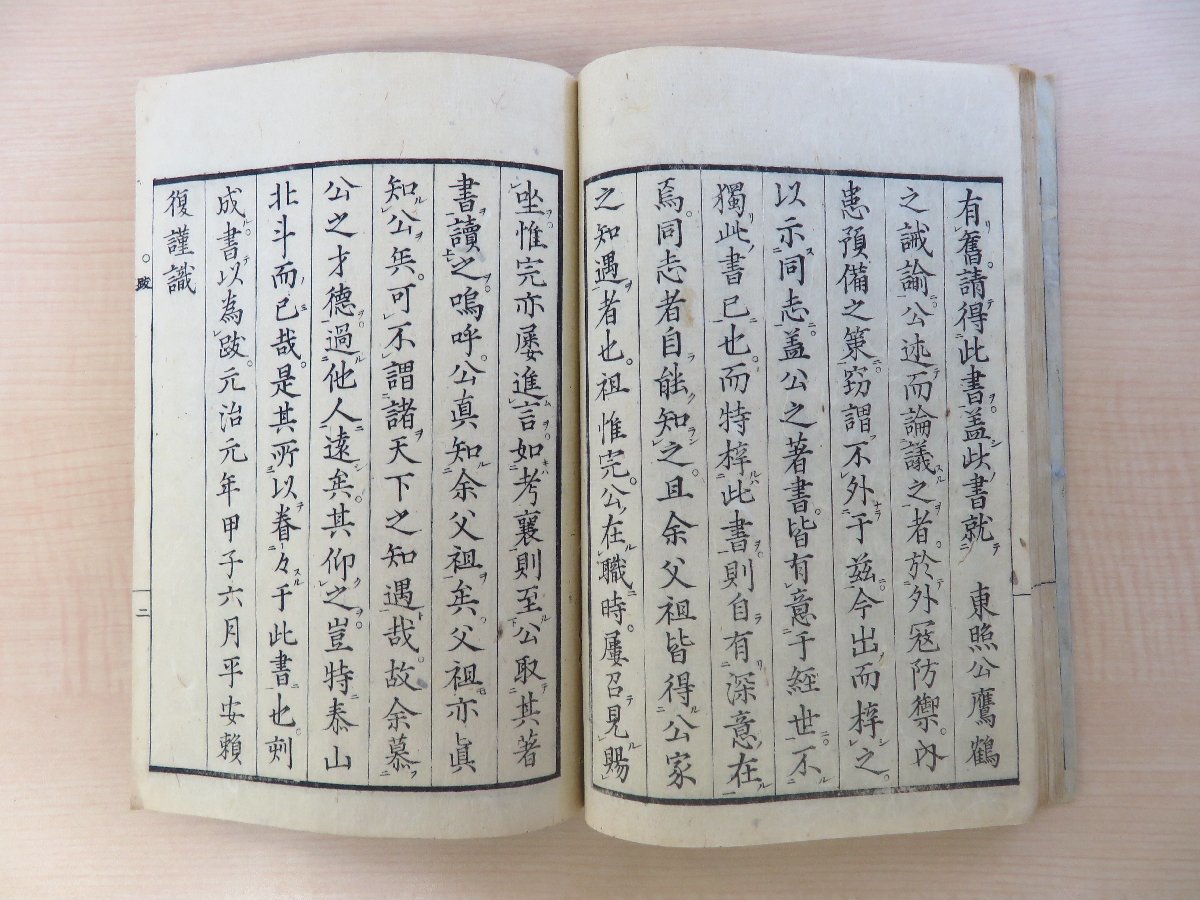 有舊請得此書盖此書就　東照公鷹鶴
之誡諭公述而論議之者於外冦防禦内
患預備之策竊謂不外于兹今出而梓之
以示同志盖公之著書皆有意于經世不
獨此書已也而特梓此書則自有深意在
焉同志者自能知之且余父祖皆得公家
之知遇者也祖惟完公在職時屡召見賜
坐惟完亦屡進言如考襄則至公取其著
書讀之嗚呼公真知余父祖矣父祖亦眞
知公矣可不謂諸天下之知遇哉故余慕
公之才德過他人遠矣其仰之豈特泰山
北斗而已哉是其所以眷々于此書也刻
成書以為跋元治元年甲子六月平安頼
復謹識
跋
二